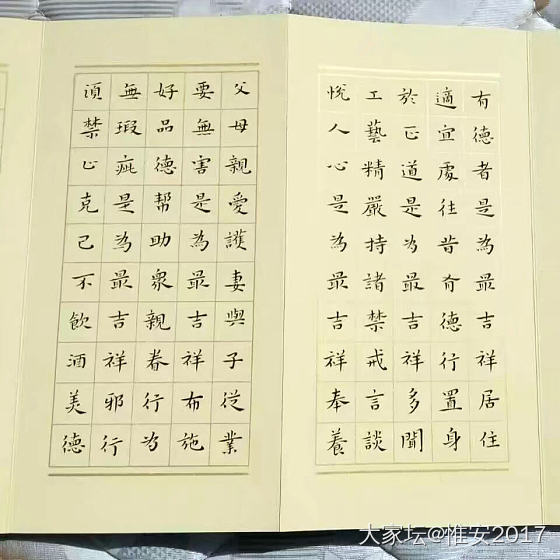 有德者是為最吉祥居住
適宜處往昔有德行置身
於正道是為最吉祥多聞
工藝精嚴持諸禁戒言談
悅人心是為最吉祥奉養
父母親愛護妻與子從業
要無害是為最吉祥布施
好品德幫助眾親眷行為
無瑕疵是為最吉祥邪行
須禁止克己不飲酒美德
大家坛@惟安2017